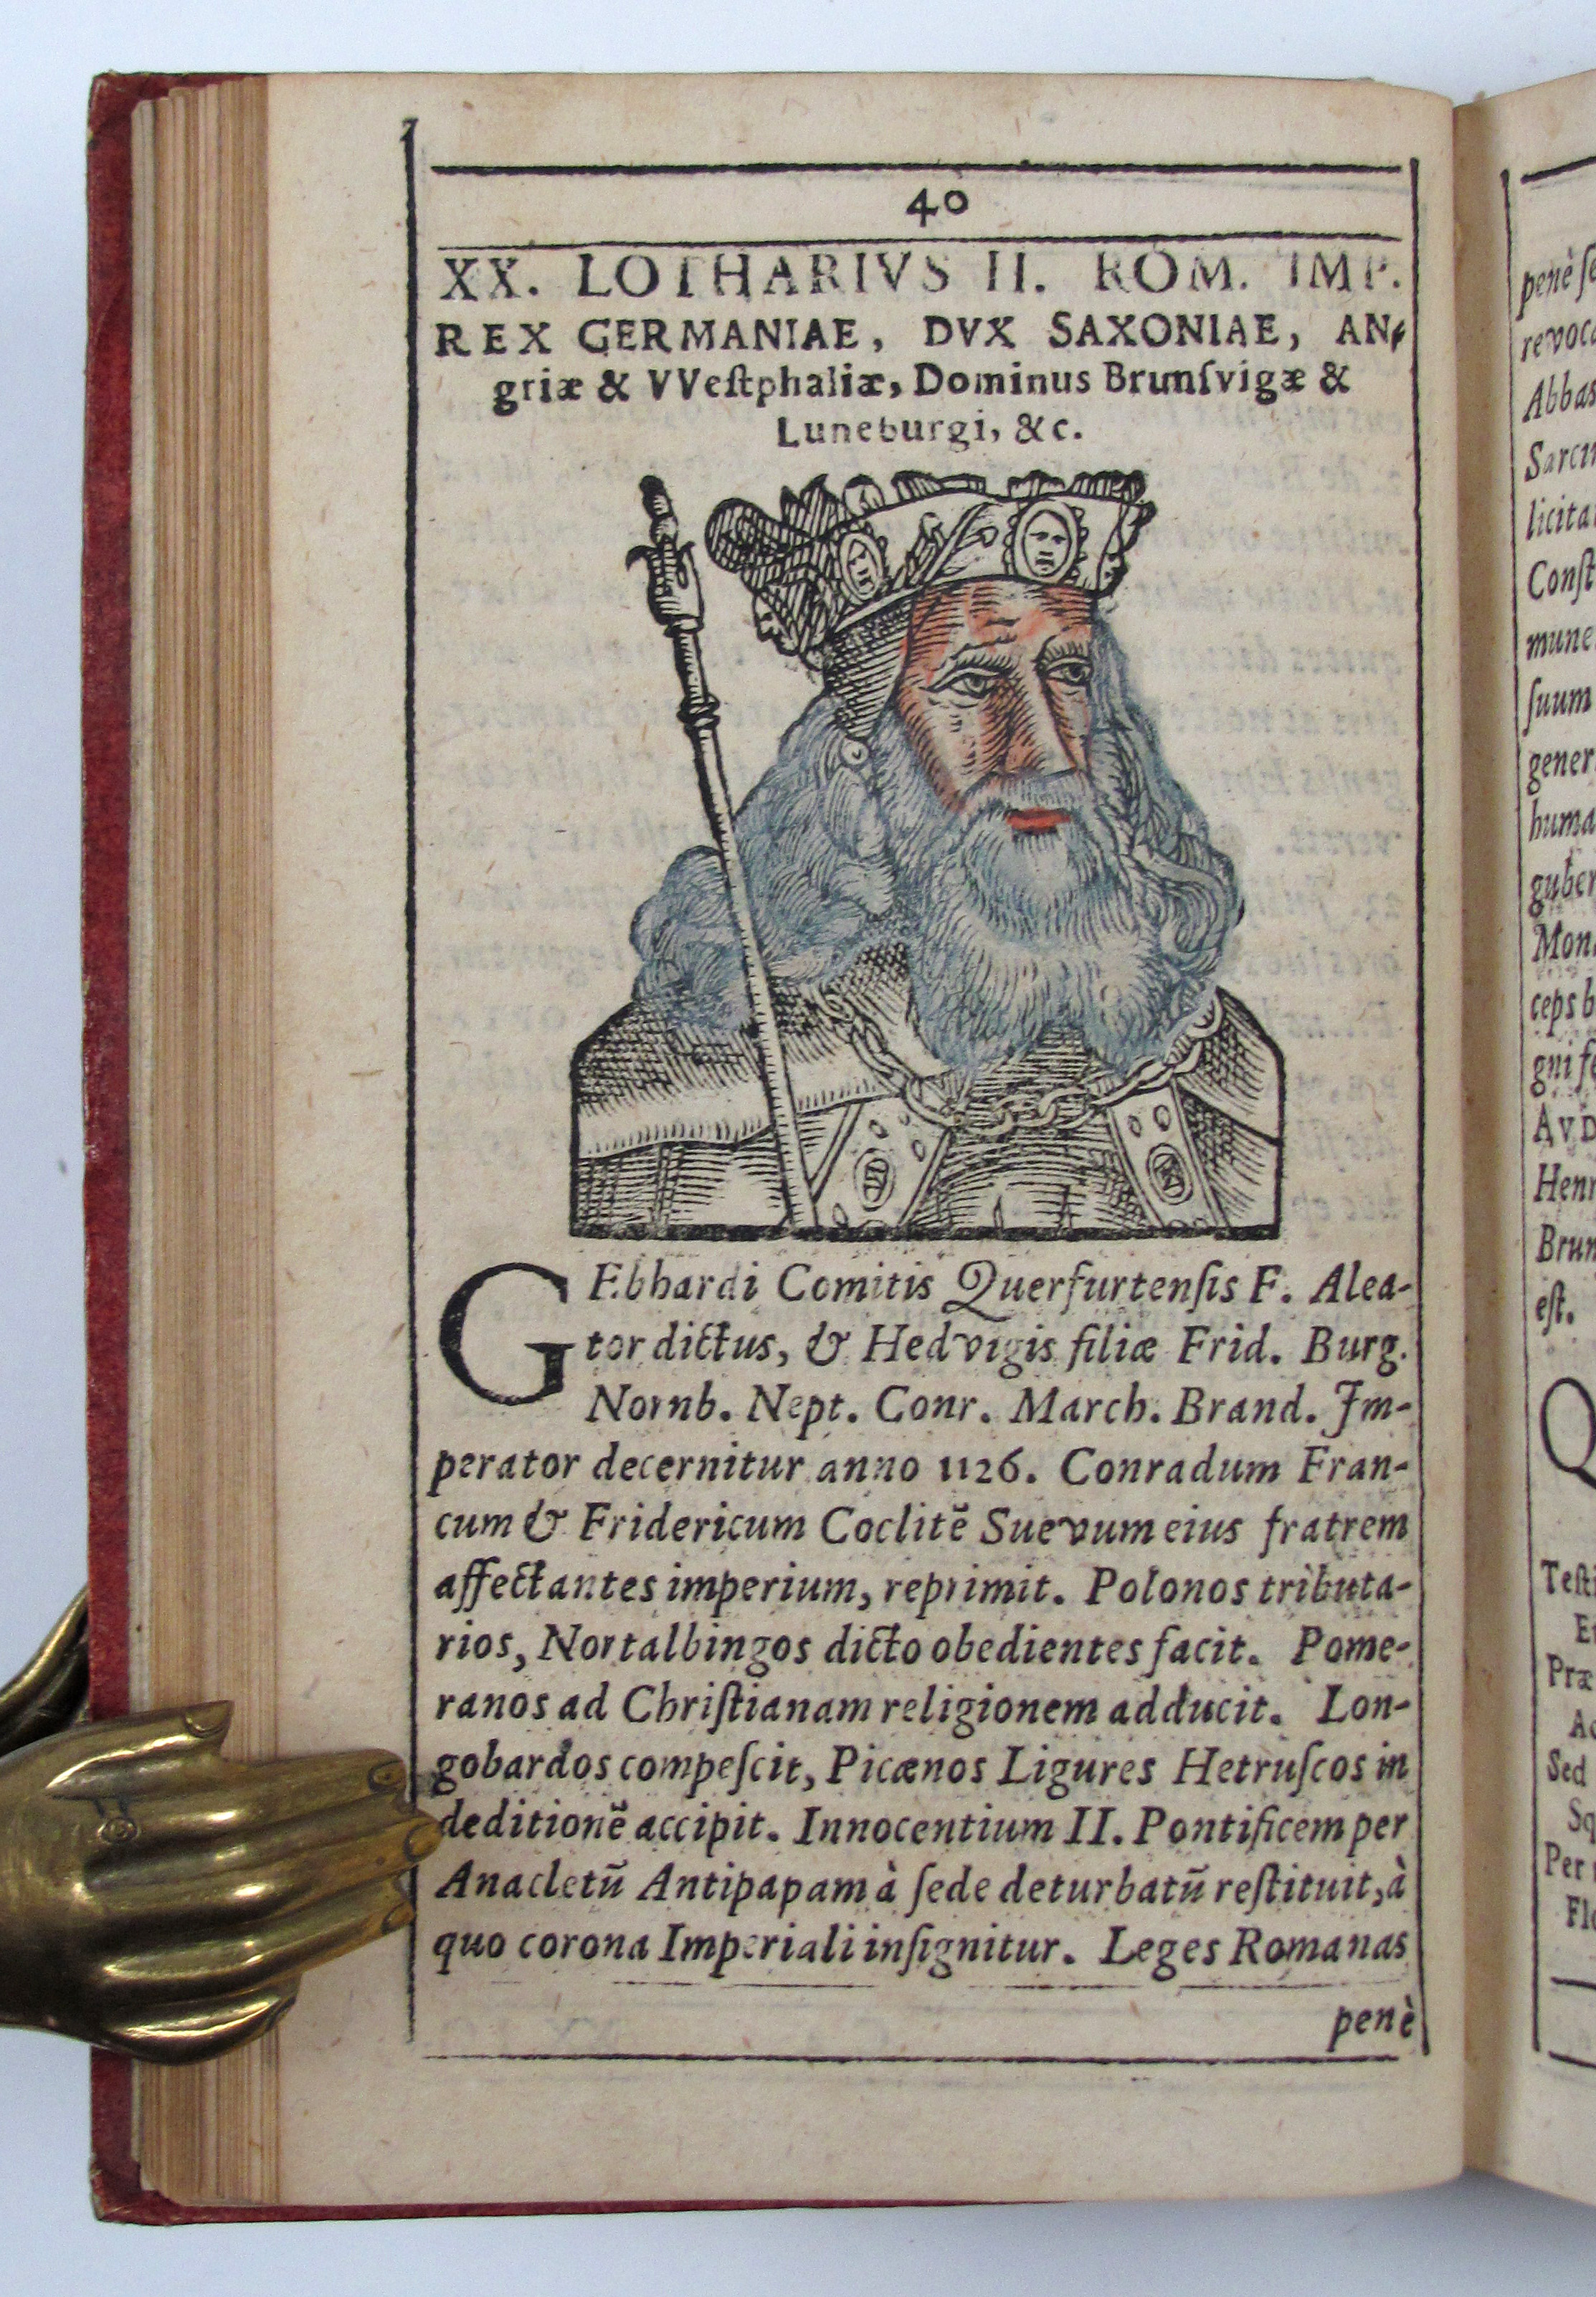 40
XX. LOTHARIVS II. ROM. IMP.
REX GERMANIAE, DVX SAXONIAE, AN-
griæ & VVeſtphaliæ, Dominus Brunſvigæ &
Luneburgi, &c.
GEbhardi Comitis Querfurtenſis F. Alea-
tor dictus, & Hedvigis filiæ Frid. Burg.
Nornb. Nept. Conr. March. Brand. Im-
perator decernitur anno 1126. Conradum Fran-
cum & Fridericum Coclitē Suevum eius fratrem
affectantes imperium, reprimit. Polonos tributa-
rios, Nortalbingos dicto obedientes facit. Pome-
ranos ad Chriſtianam religionem adducit. Lon-
gobardos compeſcit, Picænos Ligures Hetruſcos in
deditionē accipit. Innocentium II. Pontificem per
Anacletū Antipapam à ſede deturbatū reſtituit, à
quo corona Imperiali inſignitur. Leges Romanas
penè
penè
Abbas
eſt.